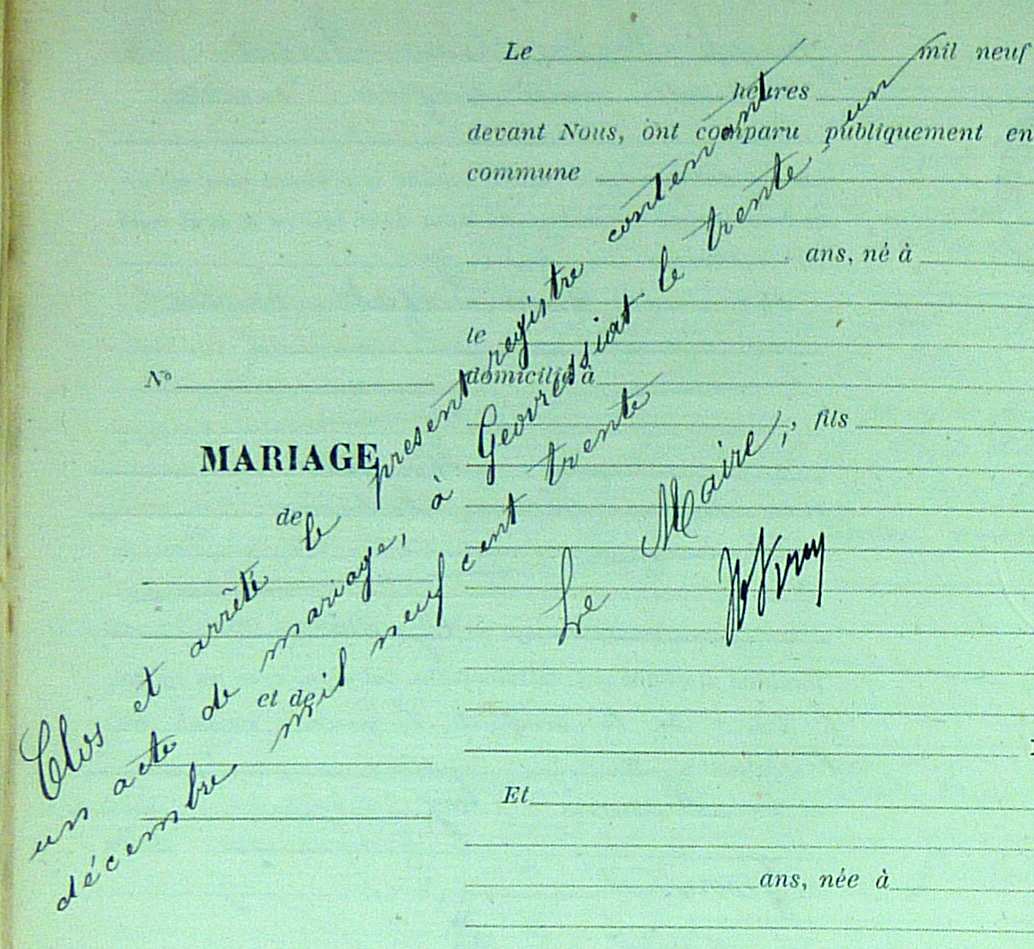 Le mil neuf
heures
devant Nous, ont comparu publiquement en
commune
ans, né à
le
domicilié à
fils
Et
ans, née à
No
MARIAGE
de
et de
Clos et arrêté le present registre contenant
un acte de mariage, à Geovressiat le trente-un
décembre mil neuf cent trente
Le Maire,